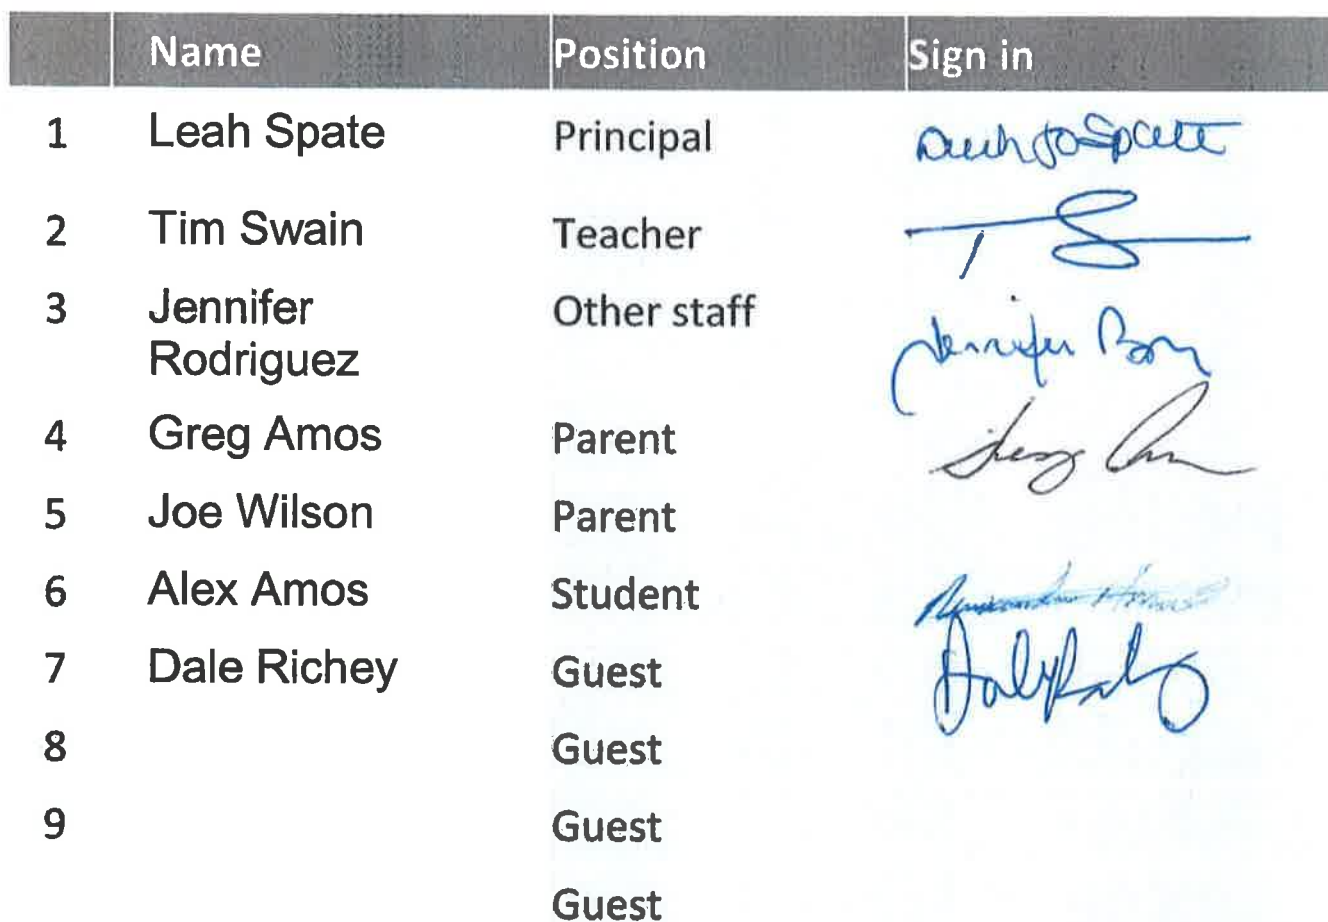 Name Position Sign in
1 Leah Spate Principal
2 Tim Swain Teacher
3 Jennifer Other staff
Rodriguez
Jennifer
4 Greg Amos Parent
5 Joe Wilson Parent
6 Alex Amos Student
7 Dale Richey Guest
8 Guest
9 Guest
Guest